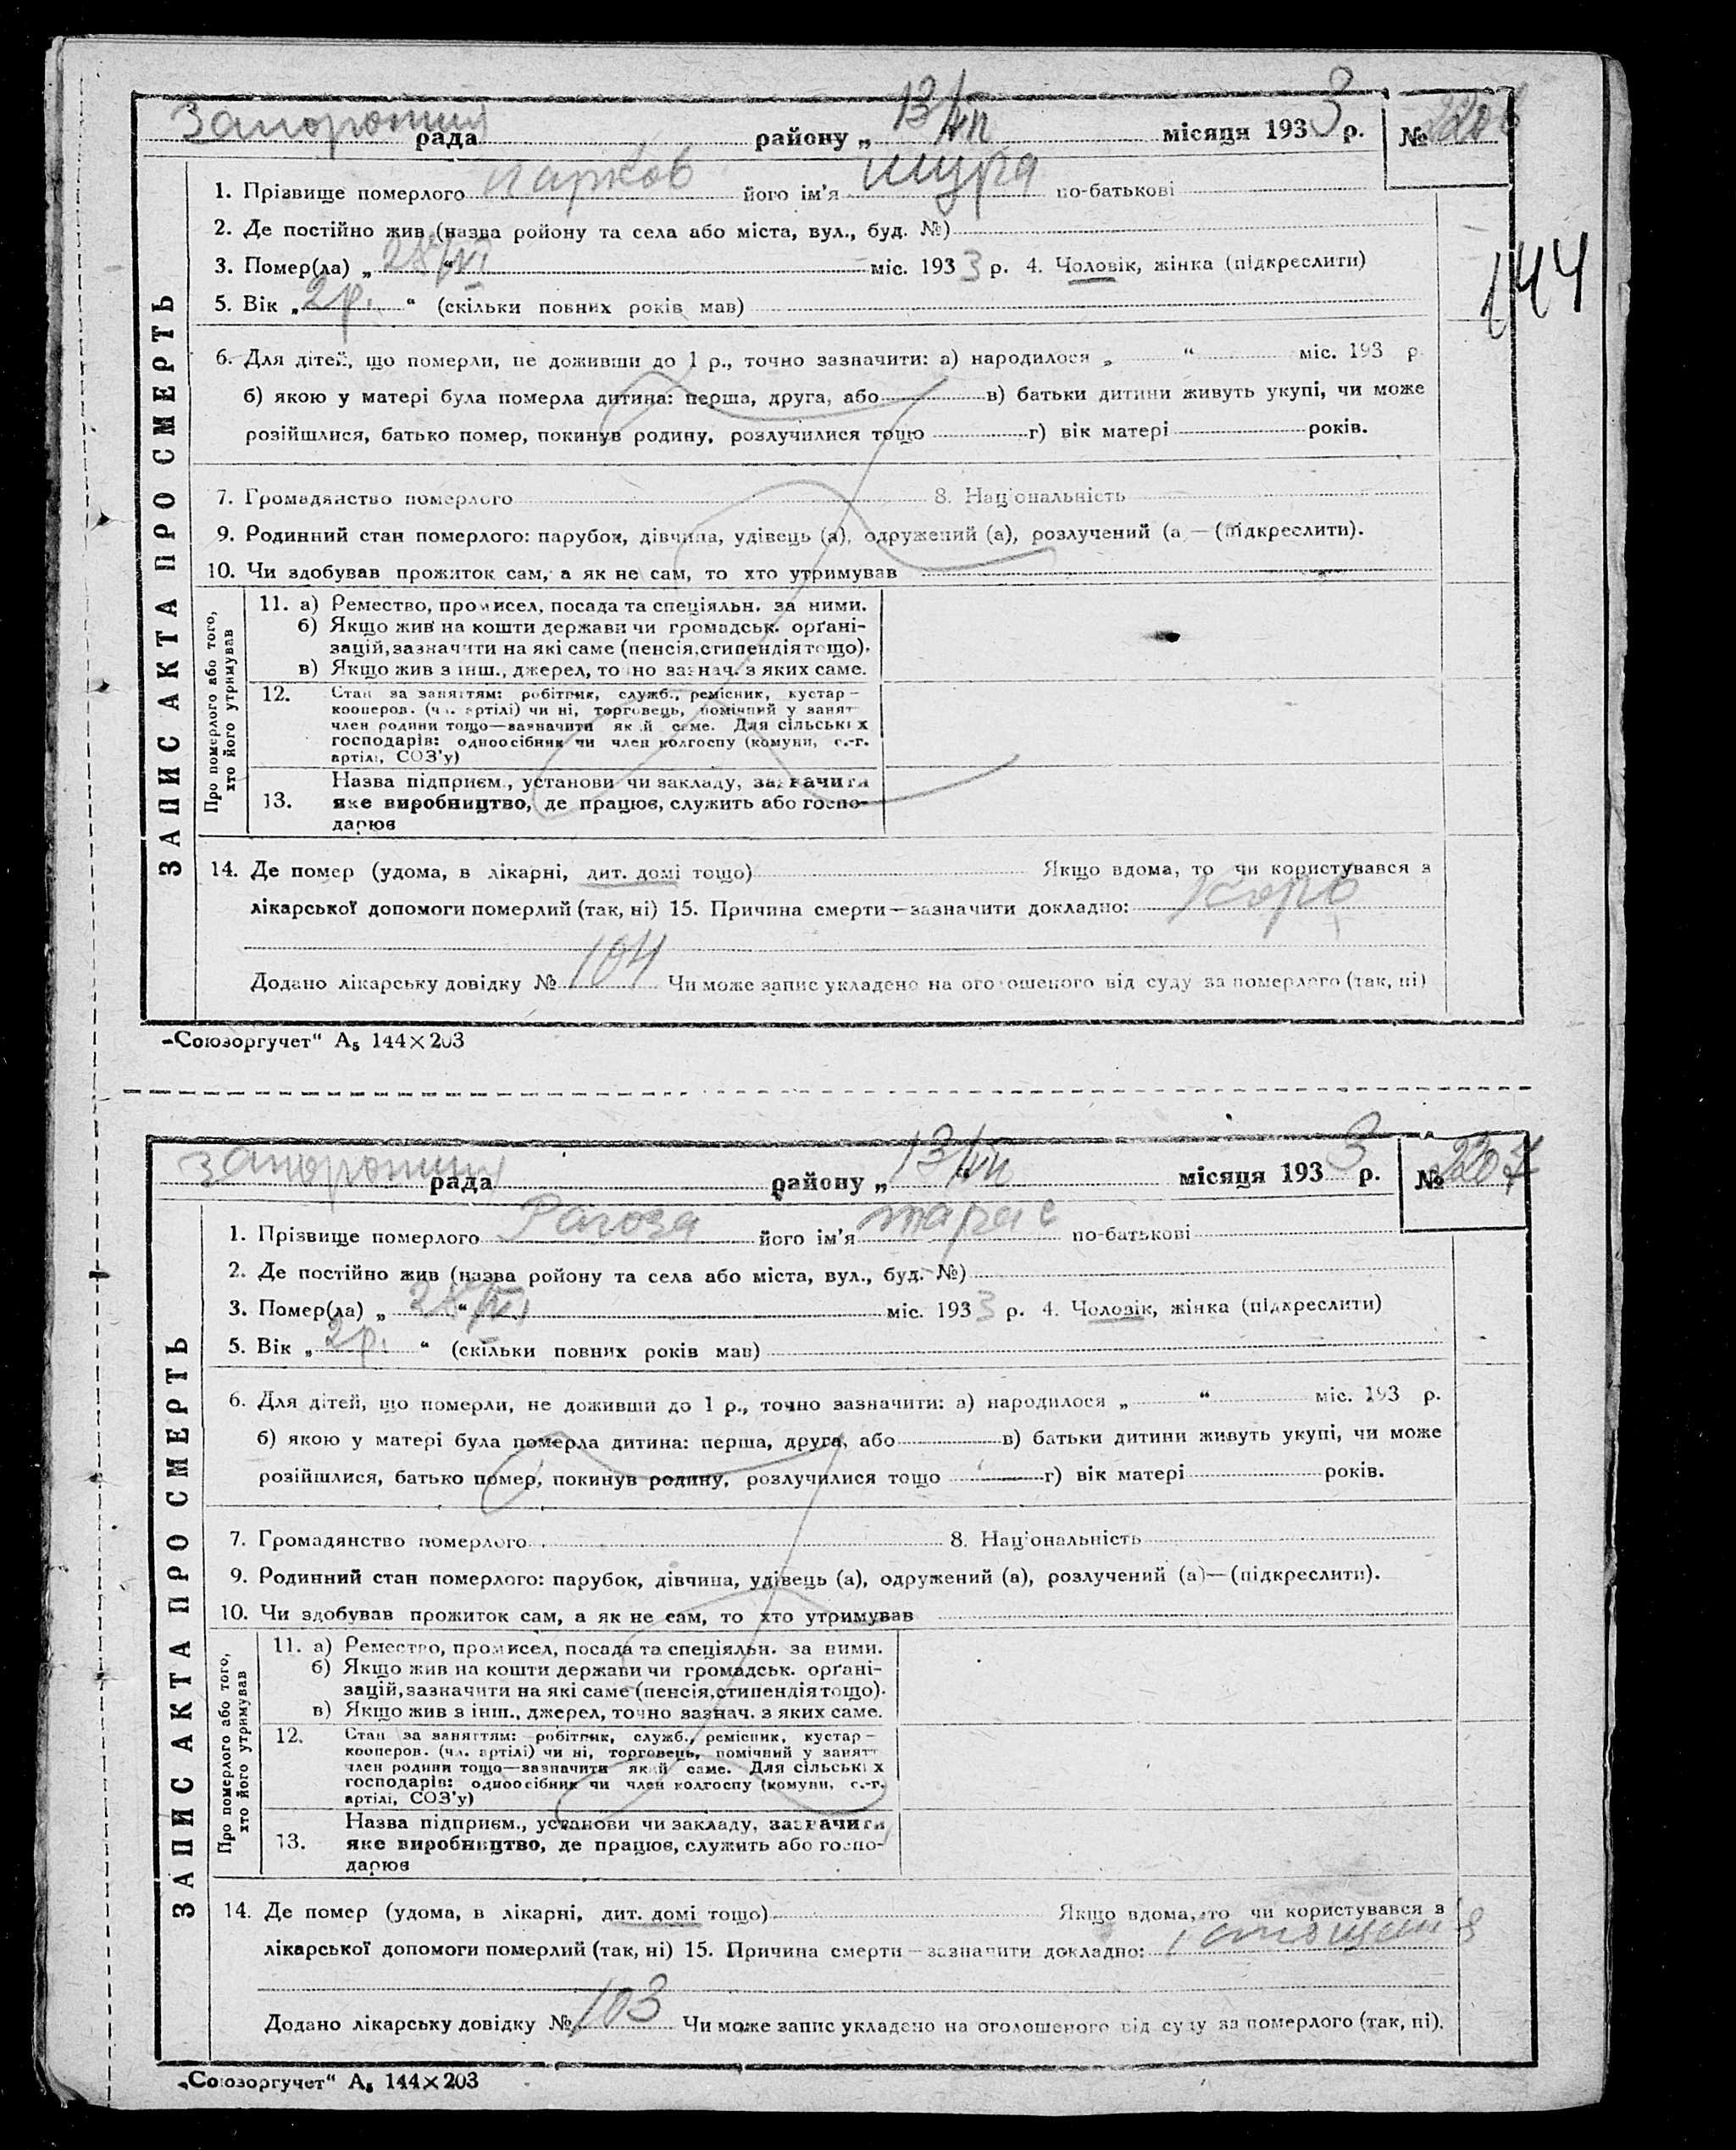 Запорожська рада району „ 13/VII місяця 1933 р. № 2206
1. Прізвище померлого Парков його ім'я Шура по-батькові
2. Де постійно жив (назва району та села або міста, вул., буд. №)
3. Помер(ла) „ 28/VI “ міс. 1933 р. 4. Чоловік, жінка (підкреслити)
144
5. Вік „ 2 р. “ (скільки повних років мав)
6. Для дітей, що померли, не доживши до 1 р., точно зазначити: а) народилося „ “ міс. 193 р.
б) якою у матері була померла дитина: перша, друга, або в) батьки дитини живуть укупі, чи може
розійшлися, батько помер, покинув родину, розлучилися тощо г) вік матері років.
7. Громадянство померлого 8. Національність
9. Родинний стан померлого: парубок, дівчина, удівець (а), одружений (а), розлучений (а — (підкреслити).
10. Чи здобував прожиток сам, а як не сам, то хто утримував
ЗАПИС АКТА ПРО СМЕРТЬ
Про померлого або того,
хто його утримував
11. а) Ремество, промисел, посада та спеціяльн. за ними.
б) Якщо жив на кошти держави чи громадськ. орґані-
зацій, зазначити на які саме (пенсія, стипендія тощо).
в) Якщо жив з інш., джерел, точно зазнач. з яких саме.
12. Стан за заняттям: робітник, служб., ремісник, кустар—
кооперов. (чл. артілі) чи ні, торговець, помічний у занят
член родини тощо—зазначити який саме. Для сільських
господарів: одноосібник чи член колгоспу (комуни, с.-г.
артілі, СОЗ'у)
Назва підприєм., установи чи закладу, зазначити
13. яке виробництво, де працює, служить або госпо-
дарює
14. Де помер (удома, в лікарні, дит. домі тощо) Якщо вдома, то чи користувався з
лікарської допомоги померлий (так, ні) 15. Причина смерти—зазначити докладно: Корь
Додано лікарську довідку № 104 Чи може запис укладено на оголошеного від суду за померлого (так, ні)
„Союзоргучет“ А5 144×203
Запорожська рада району „ 13/VII місяця 1933 р. № 2207
1. Прізвище померлого Рагоза його ім'я Тарас по-батькові
2. Де постійно жив (назва ройону та села або міста, вул., буд. №)
3. Помер(ла) „ 28/VI “ міс. 1933 р. 4. Чоловік, жінка (підкреслити)
5. Вік „ 2 р. “ (скільки повних років мав)
6. Для дітей, що померли, не доживши до 1 р., точно зазначити: а) народилося „ “ міс. 193 р.
б) якою у матері була померла дитина: перша, друга, або в) батьки дитини живуть укупі, чи може
розійшлися, батько помер, покинув родину, розлучилися тощо г) вік матері років.
7. Громадянство померлого 8. Національність
9. Родинний стан померлого: парубок, дівчина, удівець (а), одружений (а), розлучений (а)—(підкреслити).
10. Чи здобував прожиток сам, а як не сам, то хто утримував
ЗАПИС АКТА ПРО СМЕРТЬ
Про померлого або того,
хто його утримував
11. а) Ремество, промисел, посада та спеціяльн. за ними.
б) Якщо жив на кошти держави чи громадськ. орґані-
зацій, зазначити на які саме (пенсія, стипендія тощо).
в) Якщо жив з інш., джерел, точно зазнач. з яких саме.
12. Стан за заняттям: робітник, служб., ремісник, кустар—
кооперов. (чл. артілі) чи ні, торговець, помічний у занят
член родини тощо—зазначити який саме. Для сільських
господарів: одноосібник чи член колгоспу (комуни, с.-г.
артілі, СОЗ'у)
Назва підприєм., установи чи закладу, зазначити
13. яке виробництво, де працює, служить або госпо-
дарює
14. Де помер (удома, в лікарні, дит. домі тощо) Якщо вдома, то чи користувався з
лікарської допомоги померлий (так, ні) 15. Причина смерти—зазначити докладно: істощения
Додано лікарську довідку № 103 Чи може запис укладено на оголошеного від суду за померлого (так, ні).
„Союзоргучет“ А5 144×203